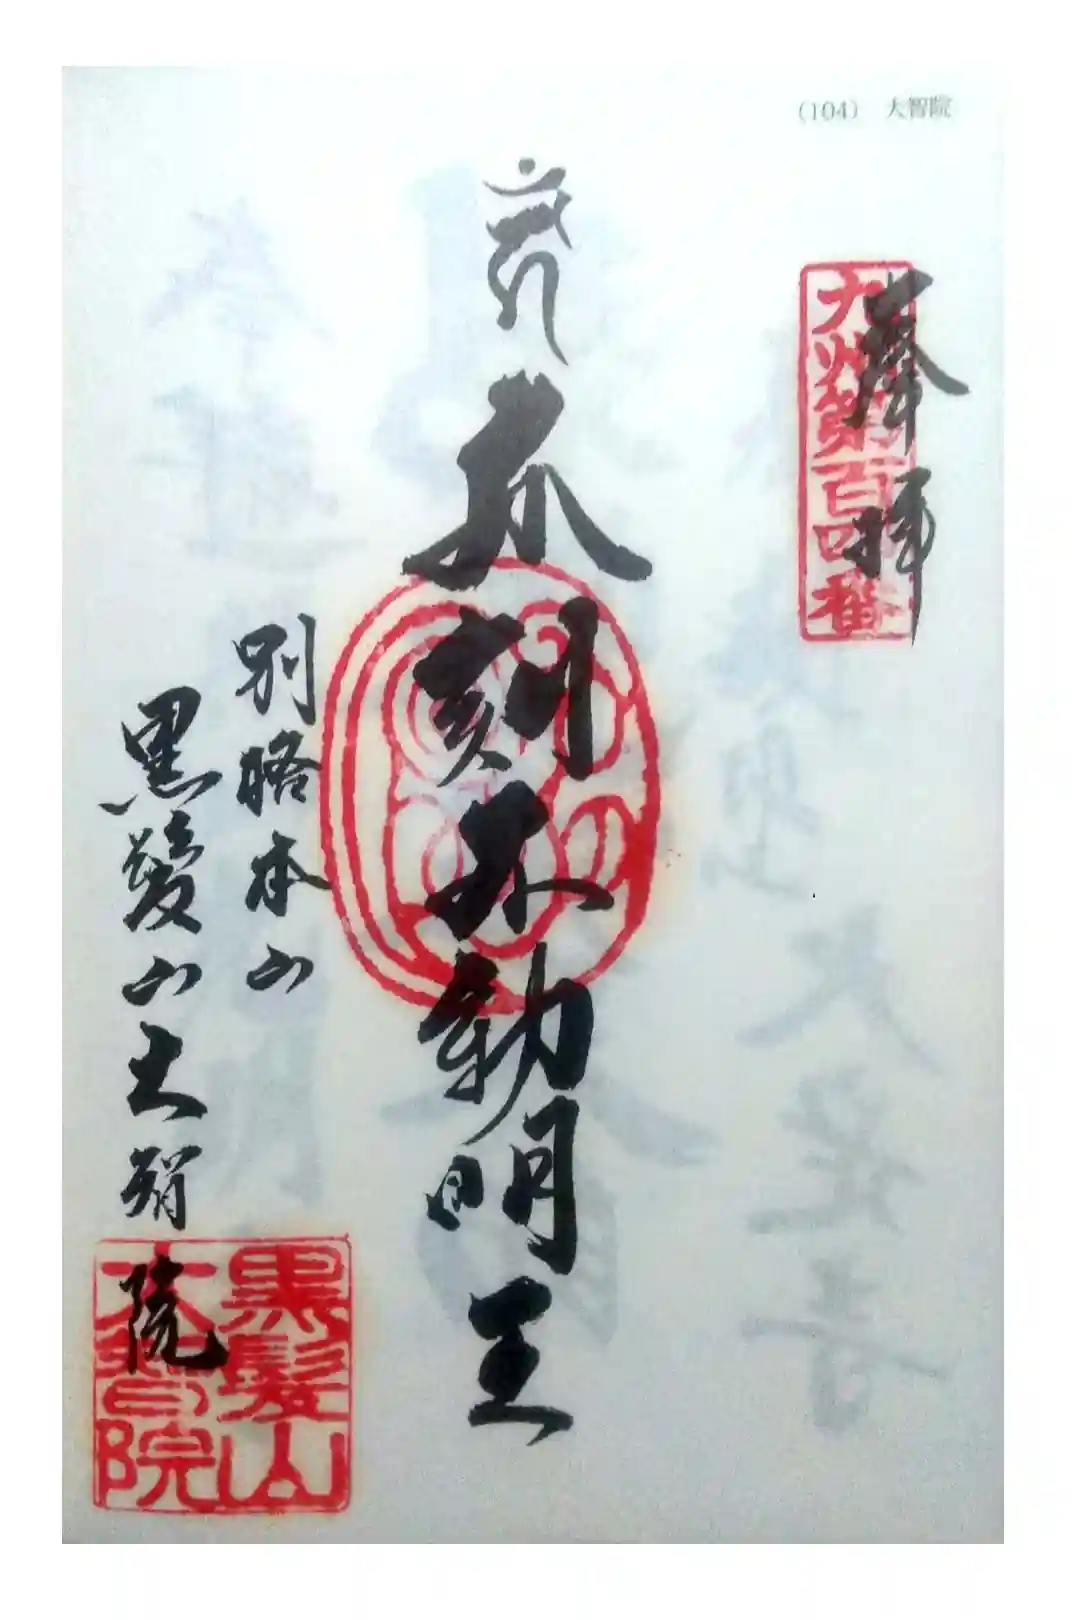 (104) 大智院
奉拝
九州第百四番
爪刻不動明王
別格本山
黒髪山大智院
黒髪山
大智院